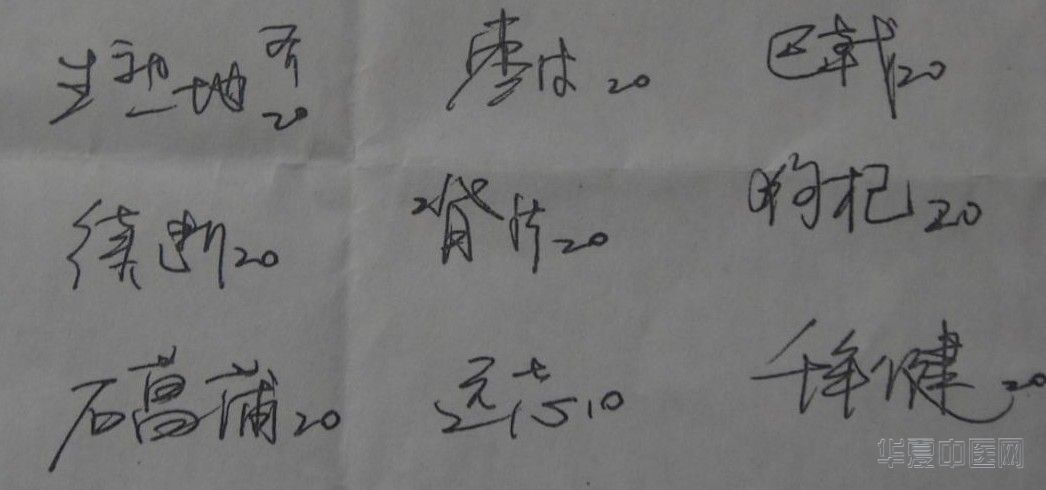 生熟地 各20 枣皮 20 巴戟 20
续断 20 脊片 20 枸杞 20
石菖蒲 20 远志 10 千年健 20
华夏中医网